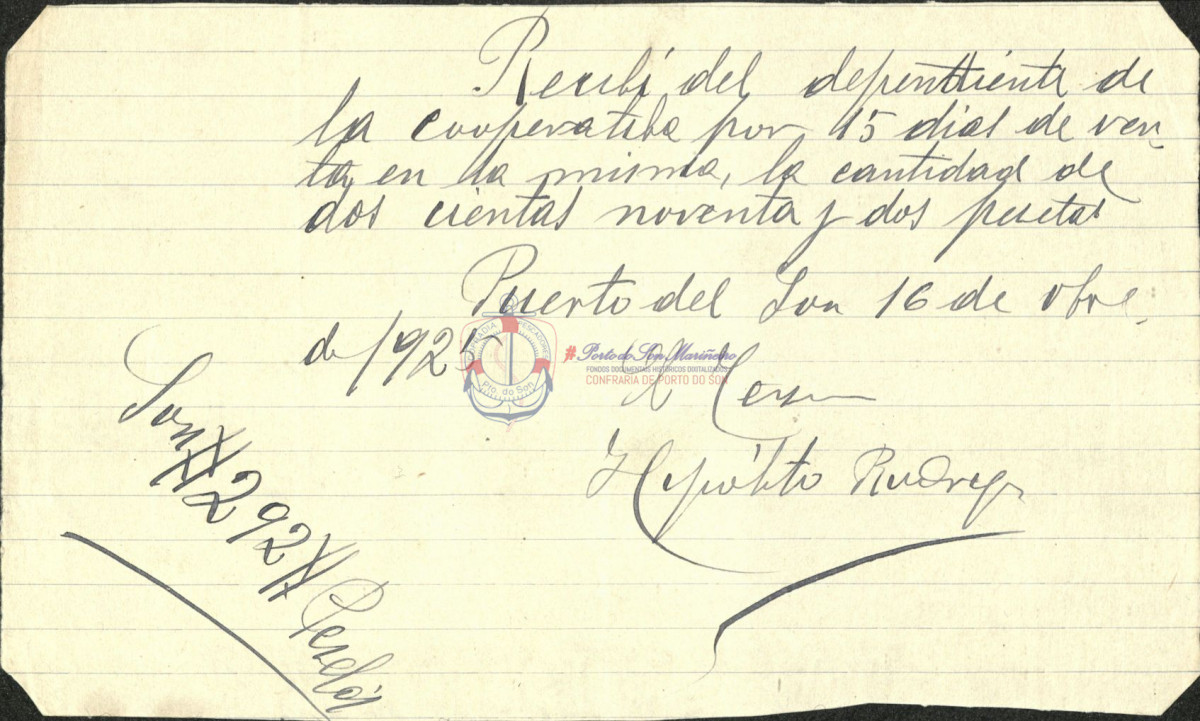 Recibí del dependiente de
la cooperatiba por 15 dias de ven
ta, en la misma, la cantidad de
dos cientas noventa y dos pesetas
Puerto del Son 16 de 8bre
de 1925
Hipólito Rodrigz
Son # 292 # Pesetas
COFRADIA PESCADORES
Pto. do Son
# Porto do Son Mariñeiro
FONDOS DOCUMENTAIS HISTÓRICOS DIXITALIZADOS
CONFRARÍA DE PORTO DO SON